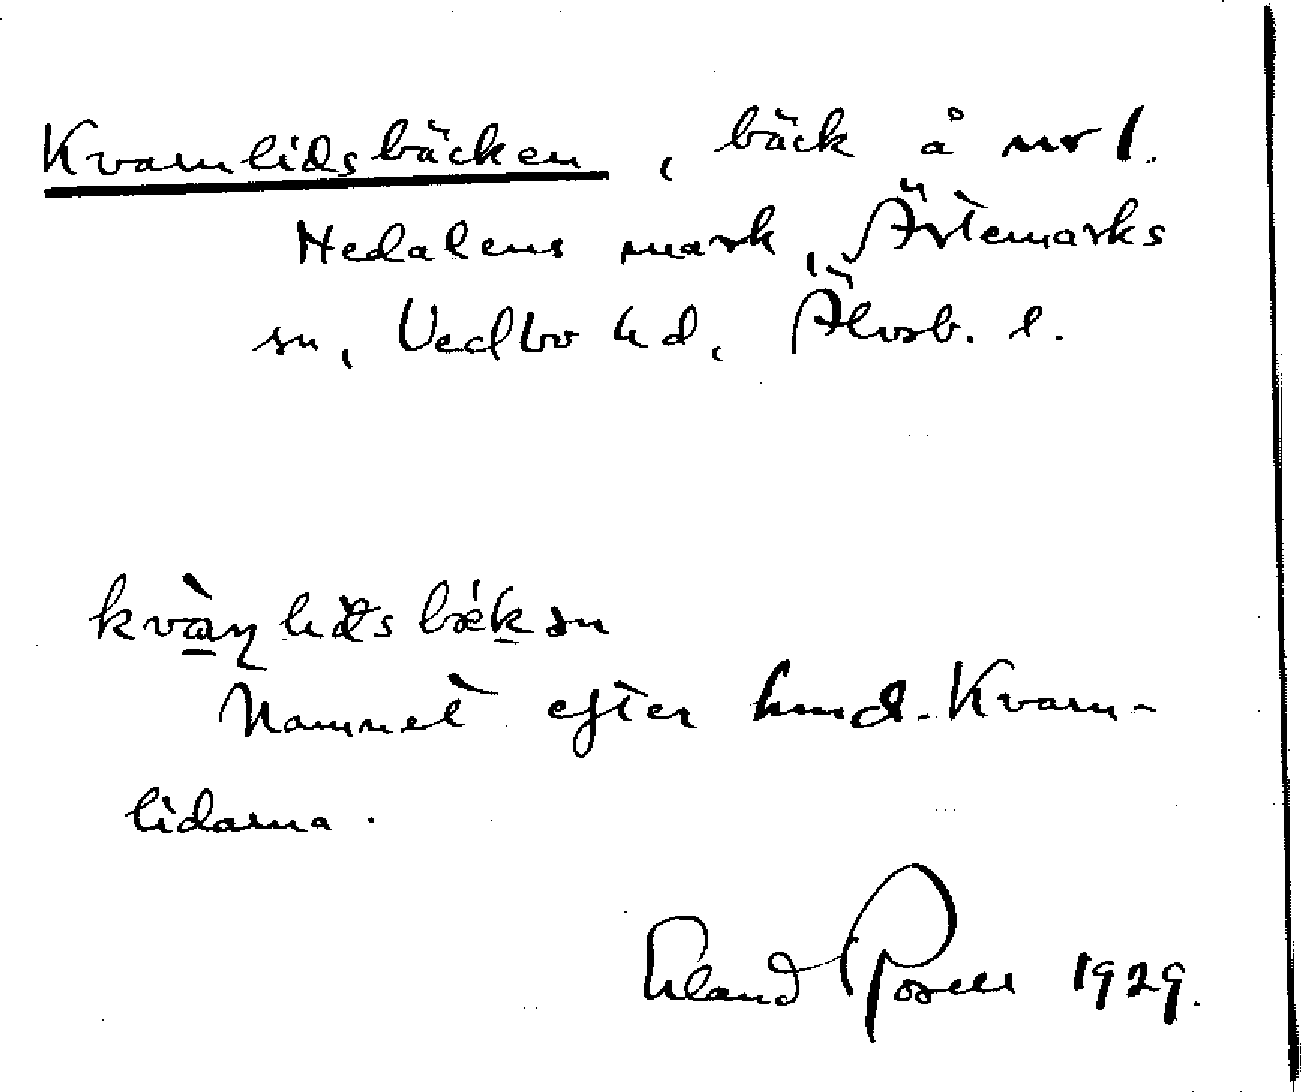 Kvarnlidsbäcken, bäck å nr 1.
Nedalens mark, Ärtemarks
sn, Vedbo hd, Älvsb. l.
kvàɳ lids bǽkən
Namnet efter hmd. Kvarn-
lidarna.
Erland Rosell 1929.